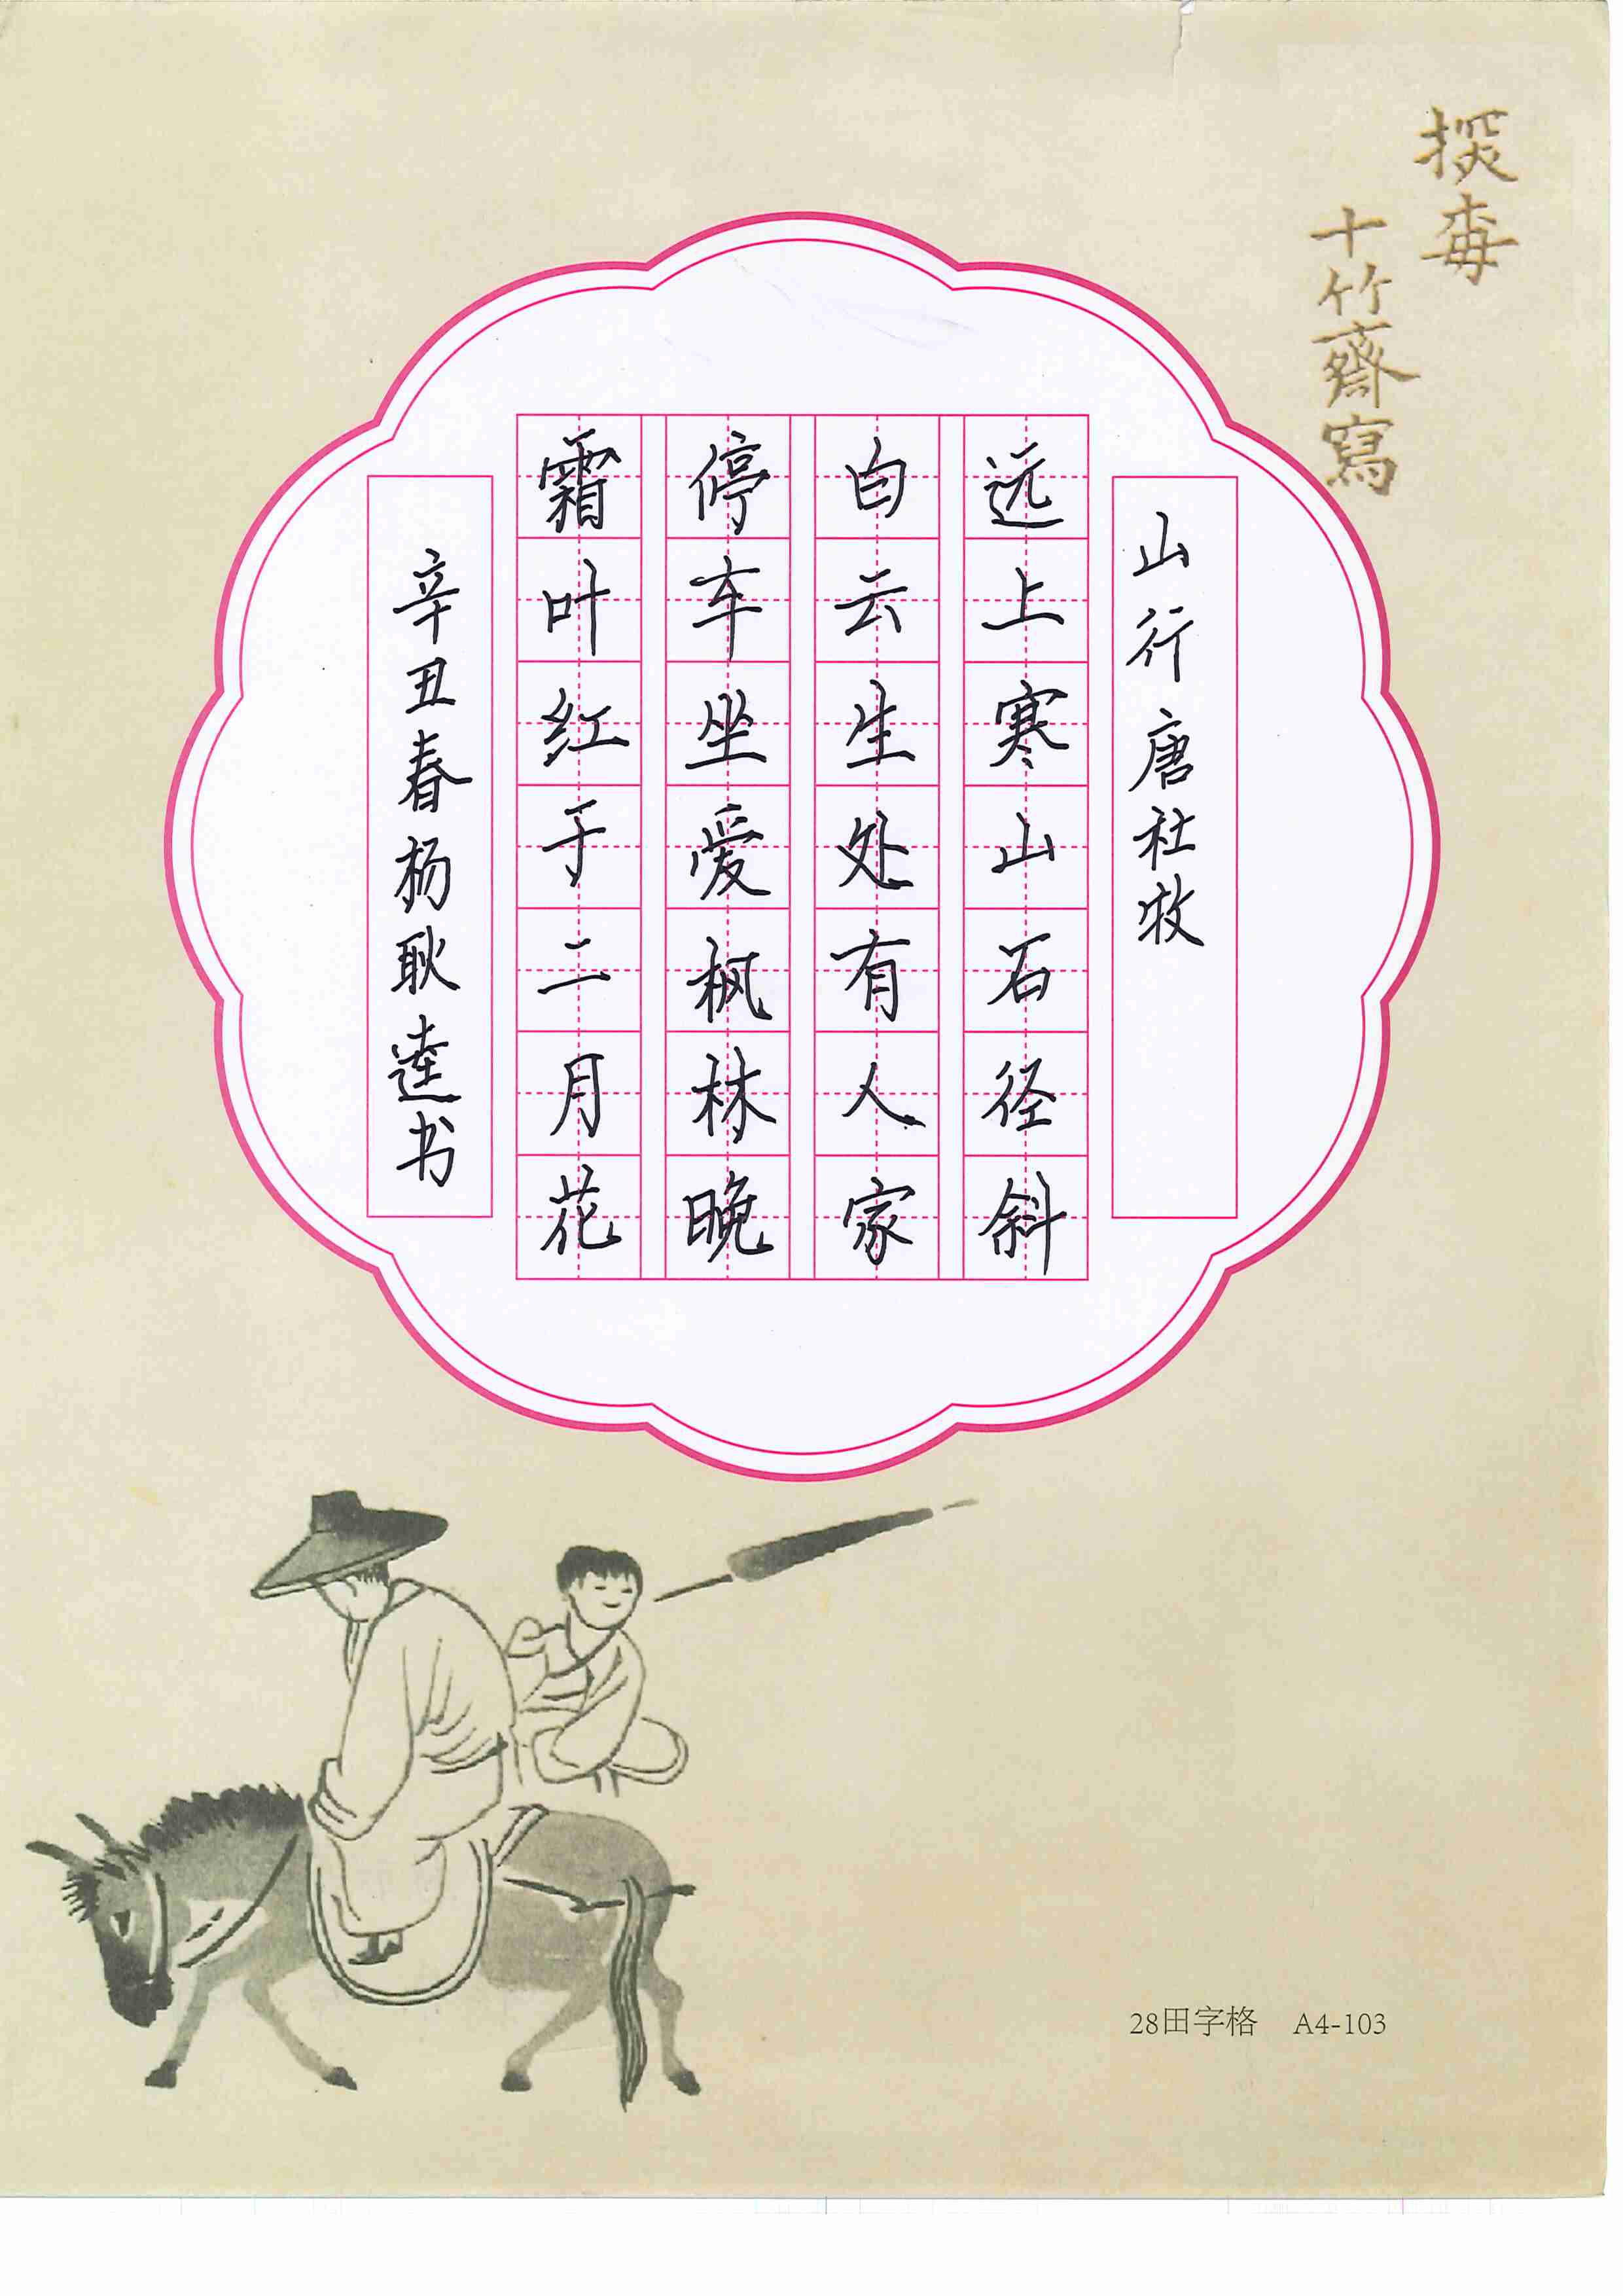 探梅
十竹齋寫
山行 唐 社牧
远上寒山石径斜
白云生处有人家
停车坐爱枫林晚
霜叶红于二月花
辛丑春杨耿逵书
28田字格 A4-103